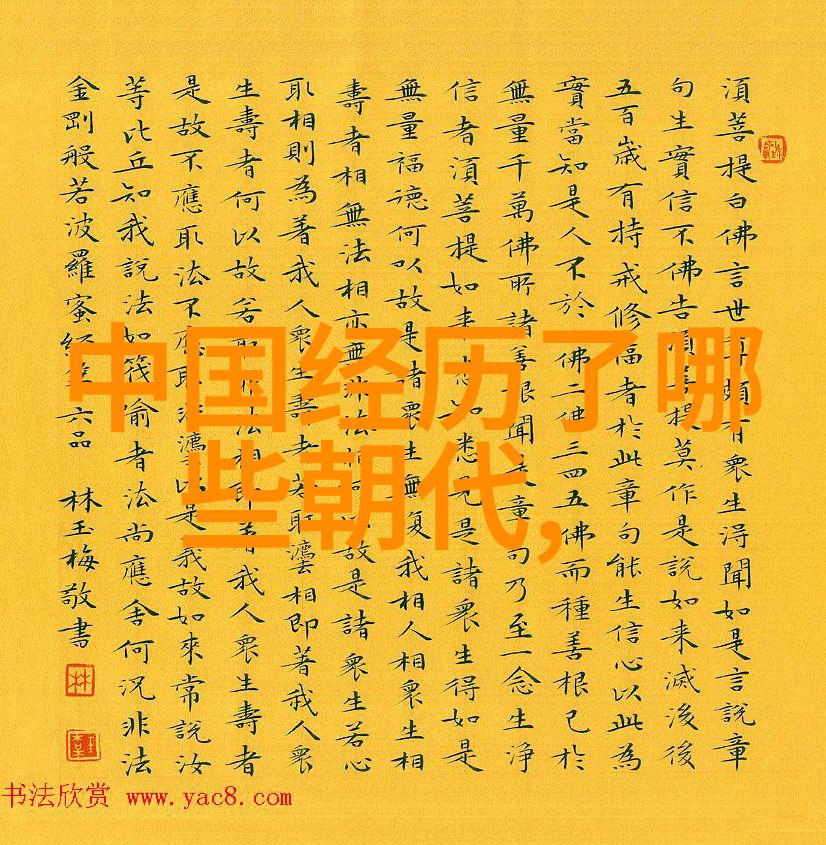 中国经历了哪
些朝代,
湏菩提白佛言世尊頗有衆生得聞如是言說章
句生實信不佛告湏菩提莫作是說如来滅後後
五百歲有持戒修福者於此章句能生信心以此為
實當知是人不於佛二佛三四五佛而種善根已於
無量千萬佛所諸善根聞是章句乃至一念生淨
信者湏菩提如来悉知悉見是諸衆生得如是
無量福德何以故是諸衆生無復我相人相衆生相
壽者相無法相亦無非法相何以故是諸衆生若心
取相則為著我人衆生壽者若取灋相即著我人衆
生壽者何以故若取非法相即著我人衆生壽者
是故不應取法不應取非灋以是義故如來常說汝
等比丘知我說法如筏喻者法尚應舍何況非法
金剛般若波羅蜜經第六品 林玉梅敬書
林
书法欣赏 www.yac8.com